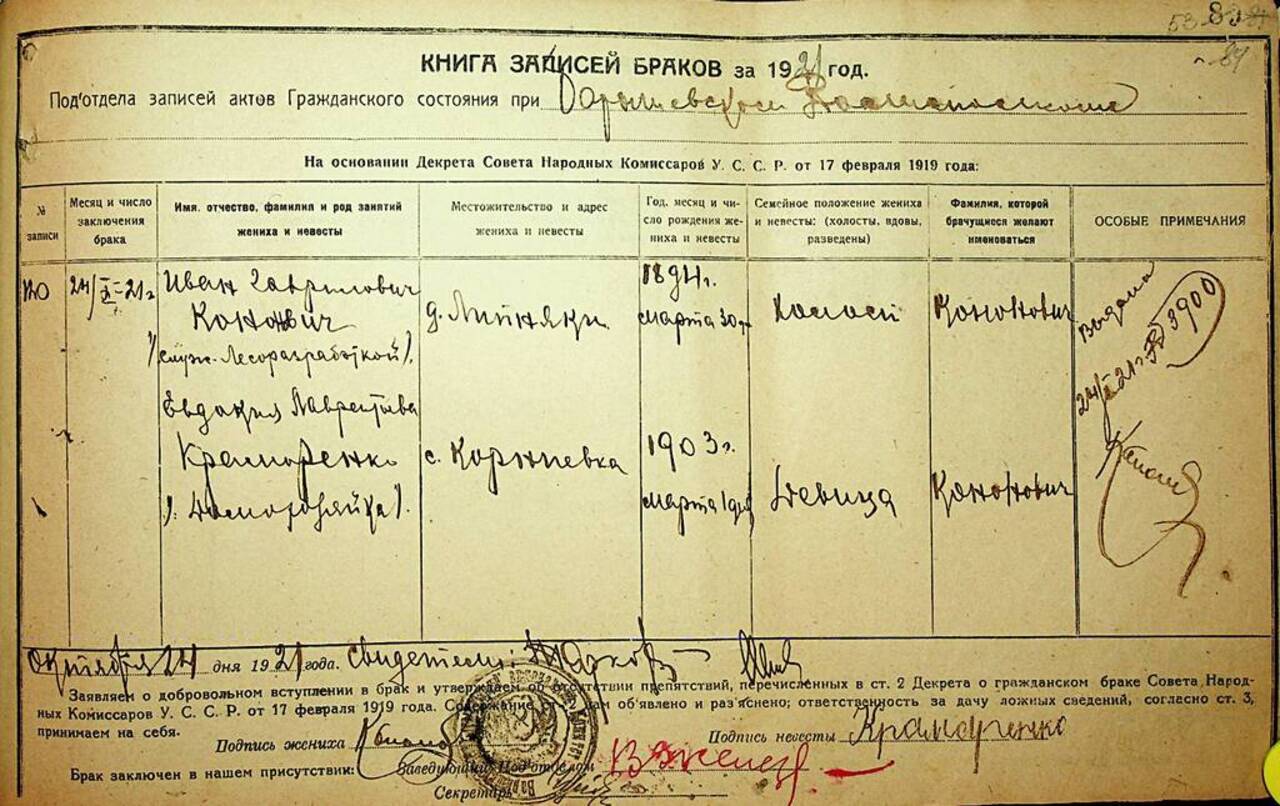 КНИГА ЗАПИСЕЙ БРАКОВ за 1921 год.
Под'отдела записей актов Гражданского состояния при
На основании Декрета Совета Народных Комиссаров У. С. С. Р. от 17 февраля 1919 года:
№ записи
Месяц и число заключения брака
Имя, отчество, фамилия и род занятий жениха и невесты
Местожительство и адрес жениха и невесты
Год, месяц и число рождения жениха и невесты
Семейное положение жениха и невесты: (холосты, вдовы, разведены)
Фамилия, которой брачущиеся желают именоваться
ОСОБЫЕ ПРИМЕЧАНИЯ
120
24/X-21г
Иван Гаврилович
Кононович
(служ. Лесоразработкой).
д. Липняки
1894г.
марта 30
Холост
Кононович
Выдана
24/X 21г. № 3900
Евдокия Лаврентьева
Крамаренко
(Домохозяйка).
с. Корниевка
1903г.
марта 1
Девица
Кононович
Октября 24 дня 1921 года. Свидетели:
Заявляем о добровольном вступлении в брак и утверждаем об отсутствии препятствий, перечисленных в ст. 2 Декрета о гражданском браке Совета Народ-
ных Комиссаров У. С. С. Р. от 17 февраля 1919 года. Содержание нам об'явлено и раз'яснено; ответственность за дачу ложных сведений, согласно ст. 3,
принимаем на себя.
Подпись жениха
Подпись невесты Крамаренко
Брак заключен в нашем присутствии: Заведующий Под'отделом
Секретарь